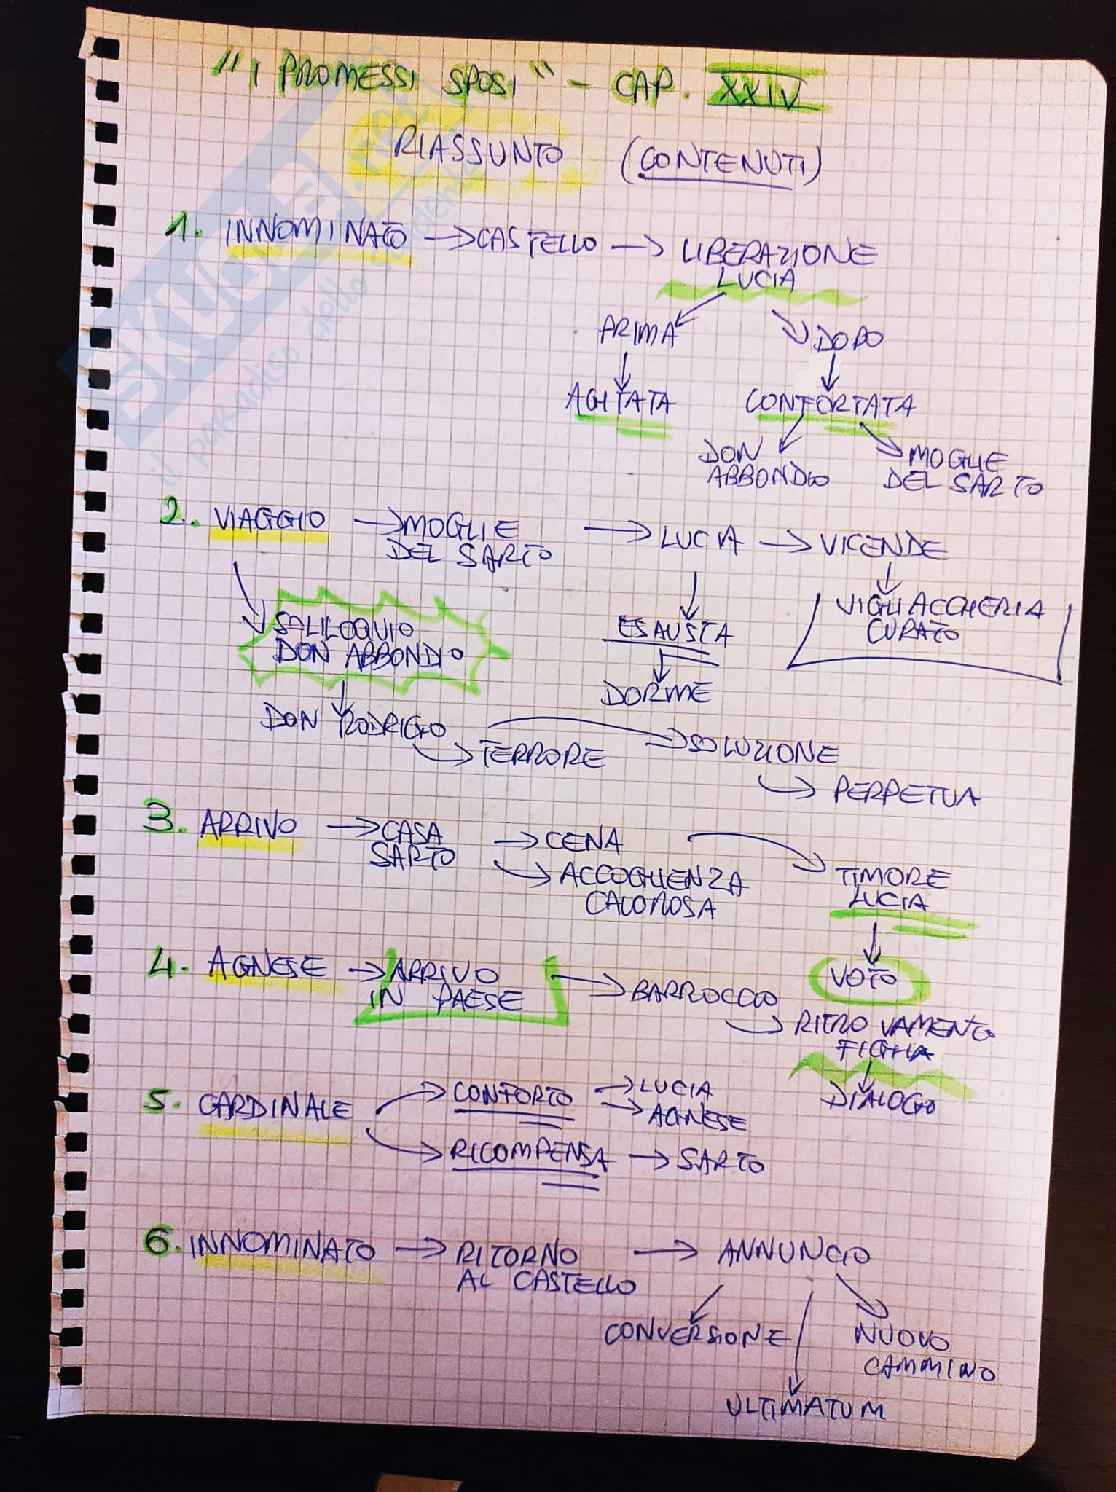 "I PROMESSI SPOSI" - CAP. XXIV
RIASSUNTO (CONTENUTI)
1. INNOMINATO → CASTELLO → LIBERAZIONE
LUCIA
PRIMA DOPO
AGITATA CONFORTATA
DON
ABBONDIO
MOGLIE
DEL SARTO
2. VIAGGIO → MOGLIE
DEL SARTO → LUCIA → VICENDE
VIGLIACCHERIA
CURATO
SOLILOQUIO
DON ABBONDIO
ESAUSTA
DORME
DON RODRIGO
TERRORE SOLUZIONE
PERPETUA
3. ARRIVO → CASA
SARTO → CENA
ACCOGLIENZA
CALOROSA
TIMORE
LUCIA
VOTO
4. AGNESE → ARRIVO
IN PAESE → BARROCCIO
RITROVAMENTO
FIGLIA
DIALOGO
5. CARDINALE
CONFORTO → LUCIA
→ AGNESE
RICOMPENSA → SARTO
6. INNOMINATO → RITORNO
AL CASTELLO → ANNUNCIO
CONVERSIONE
NUOVO
CAMMINO
ULTIMATUM
SKUOLA.net
il paradiso dello studente